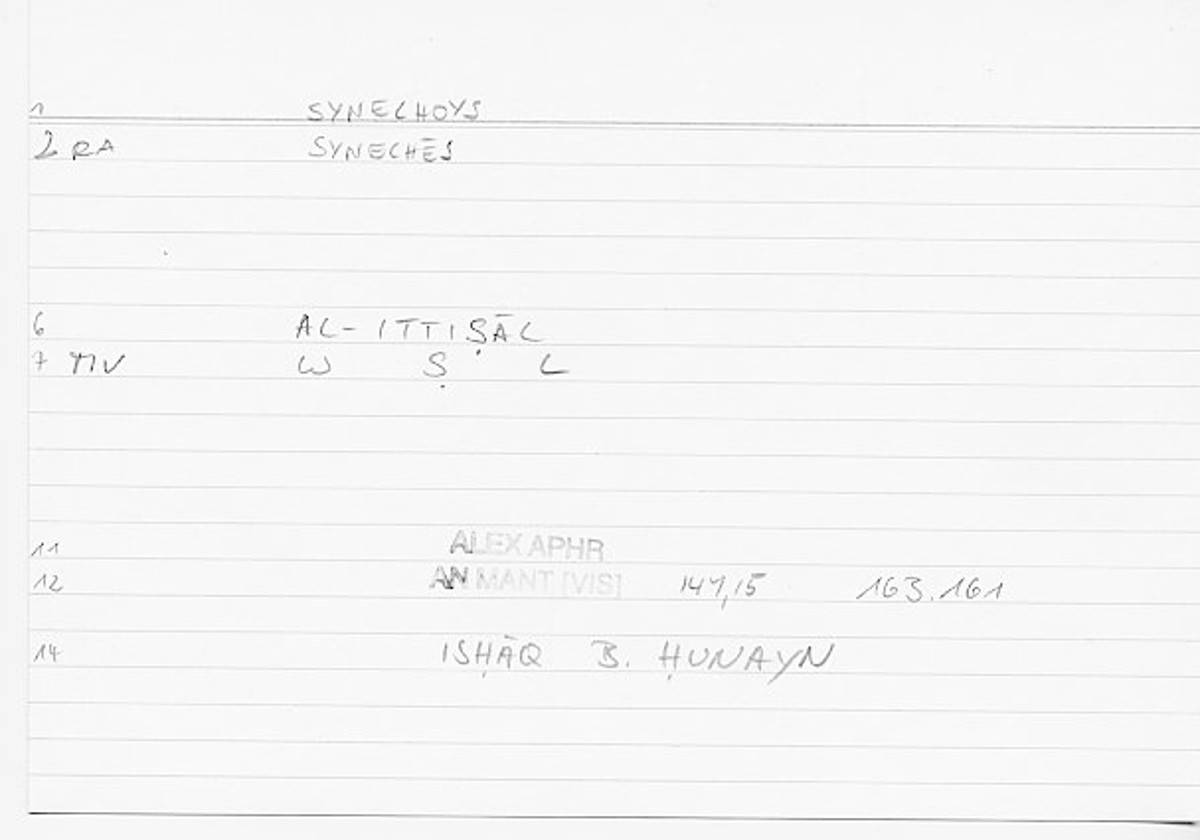 1 SYNECHOYS
2 RA SYNECHĒS
6 AL-ITTIṢĀL
7 MV W Ṣ L
11 ALEX APHR
12 AN MANT [VIS] 147,15 163.161
14 ISḤĀQ B. ḤUNAYN